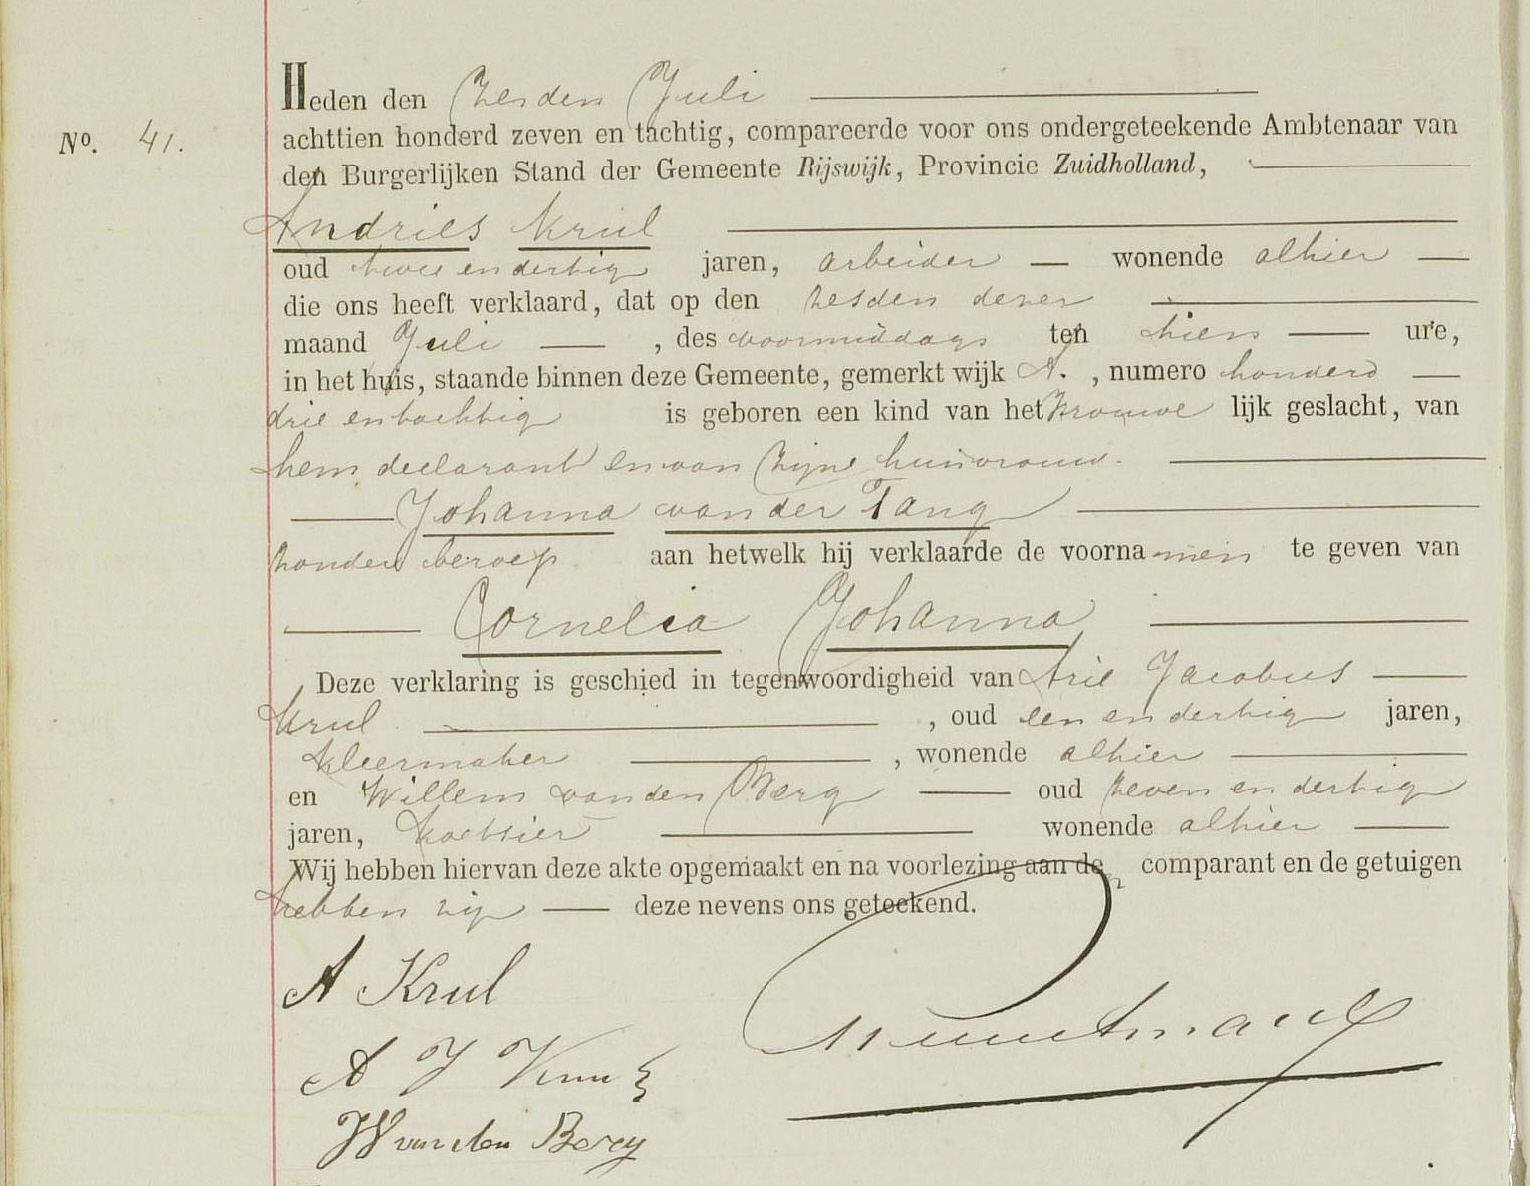 Heden den zesden Juli
No. 41.
achttien honderd zeven en tachtig, compareerde voor ons ondergeteekende Ambtenaar van
den Burgerlijken Stand der Gemeente Rijswijk, Provincie Zuidholland,
Andries Krul
oud twee en dertig jaren, arbeider wonende alhier
die ons heeft verklaard, dat op den zesden dezer
maand Juli, des voormiddags ten tien ure,
in het huis, staande binnen deze Gemeente, gemerkt wijk A., numero honderd
drie en tachtig is geboren een kind van het vrouwe lijk geslacht, van
hem declarant en van zijne huisvrouw.
Johanna van der Tang
zonder beroep aan hetwelk hij verklaarde de voornamen te geven van
Cornelia Johanna
Deze verklaring is geschied in tegenwoordigheid van Arie Jacobus
Krul, oud een en dertig jaren,
kleermaker, wonende alhier
en Willem van den Berg oud zeven en dertig
jaren, koetsier wonende alhier
Wij hebben hiervan deze akte opgemaakt en na voorlezing aan de comparant en de getuigen
hebben zij deze nevens ons geteekend.
A Krul
A J Krul
W van den Berg